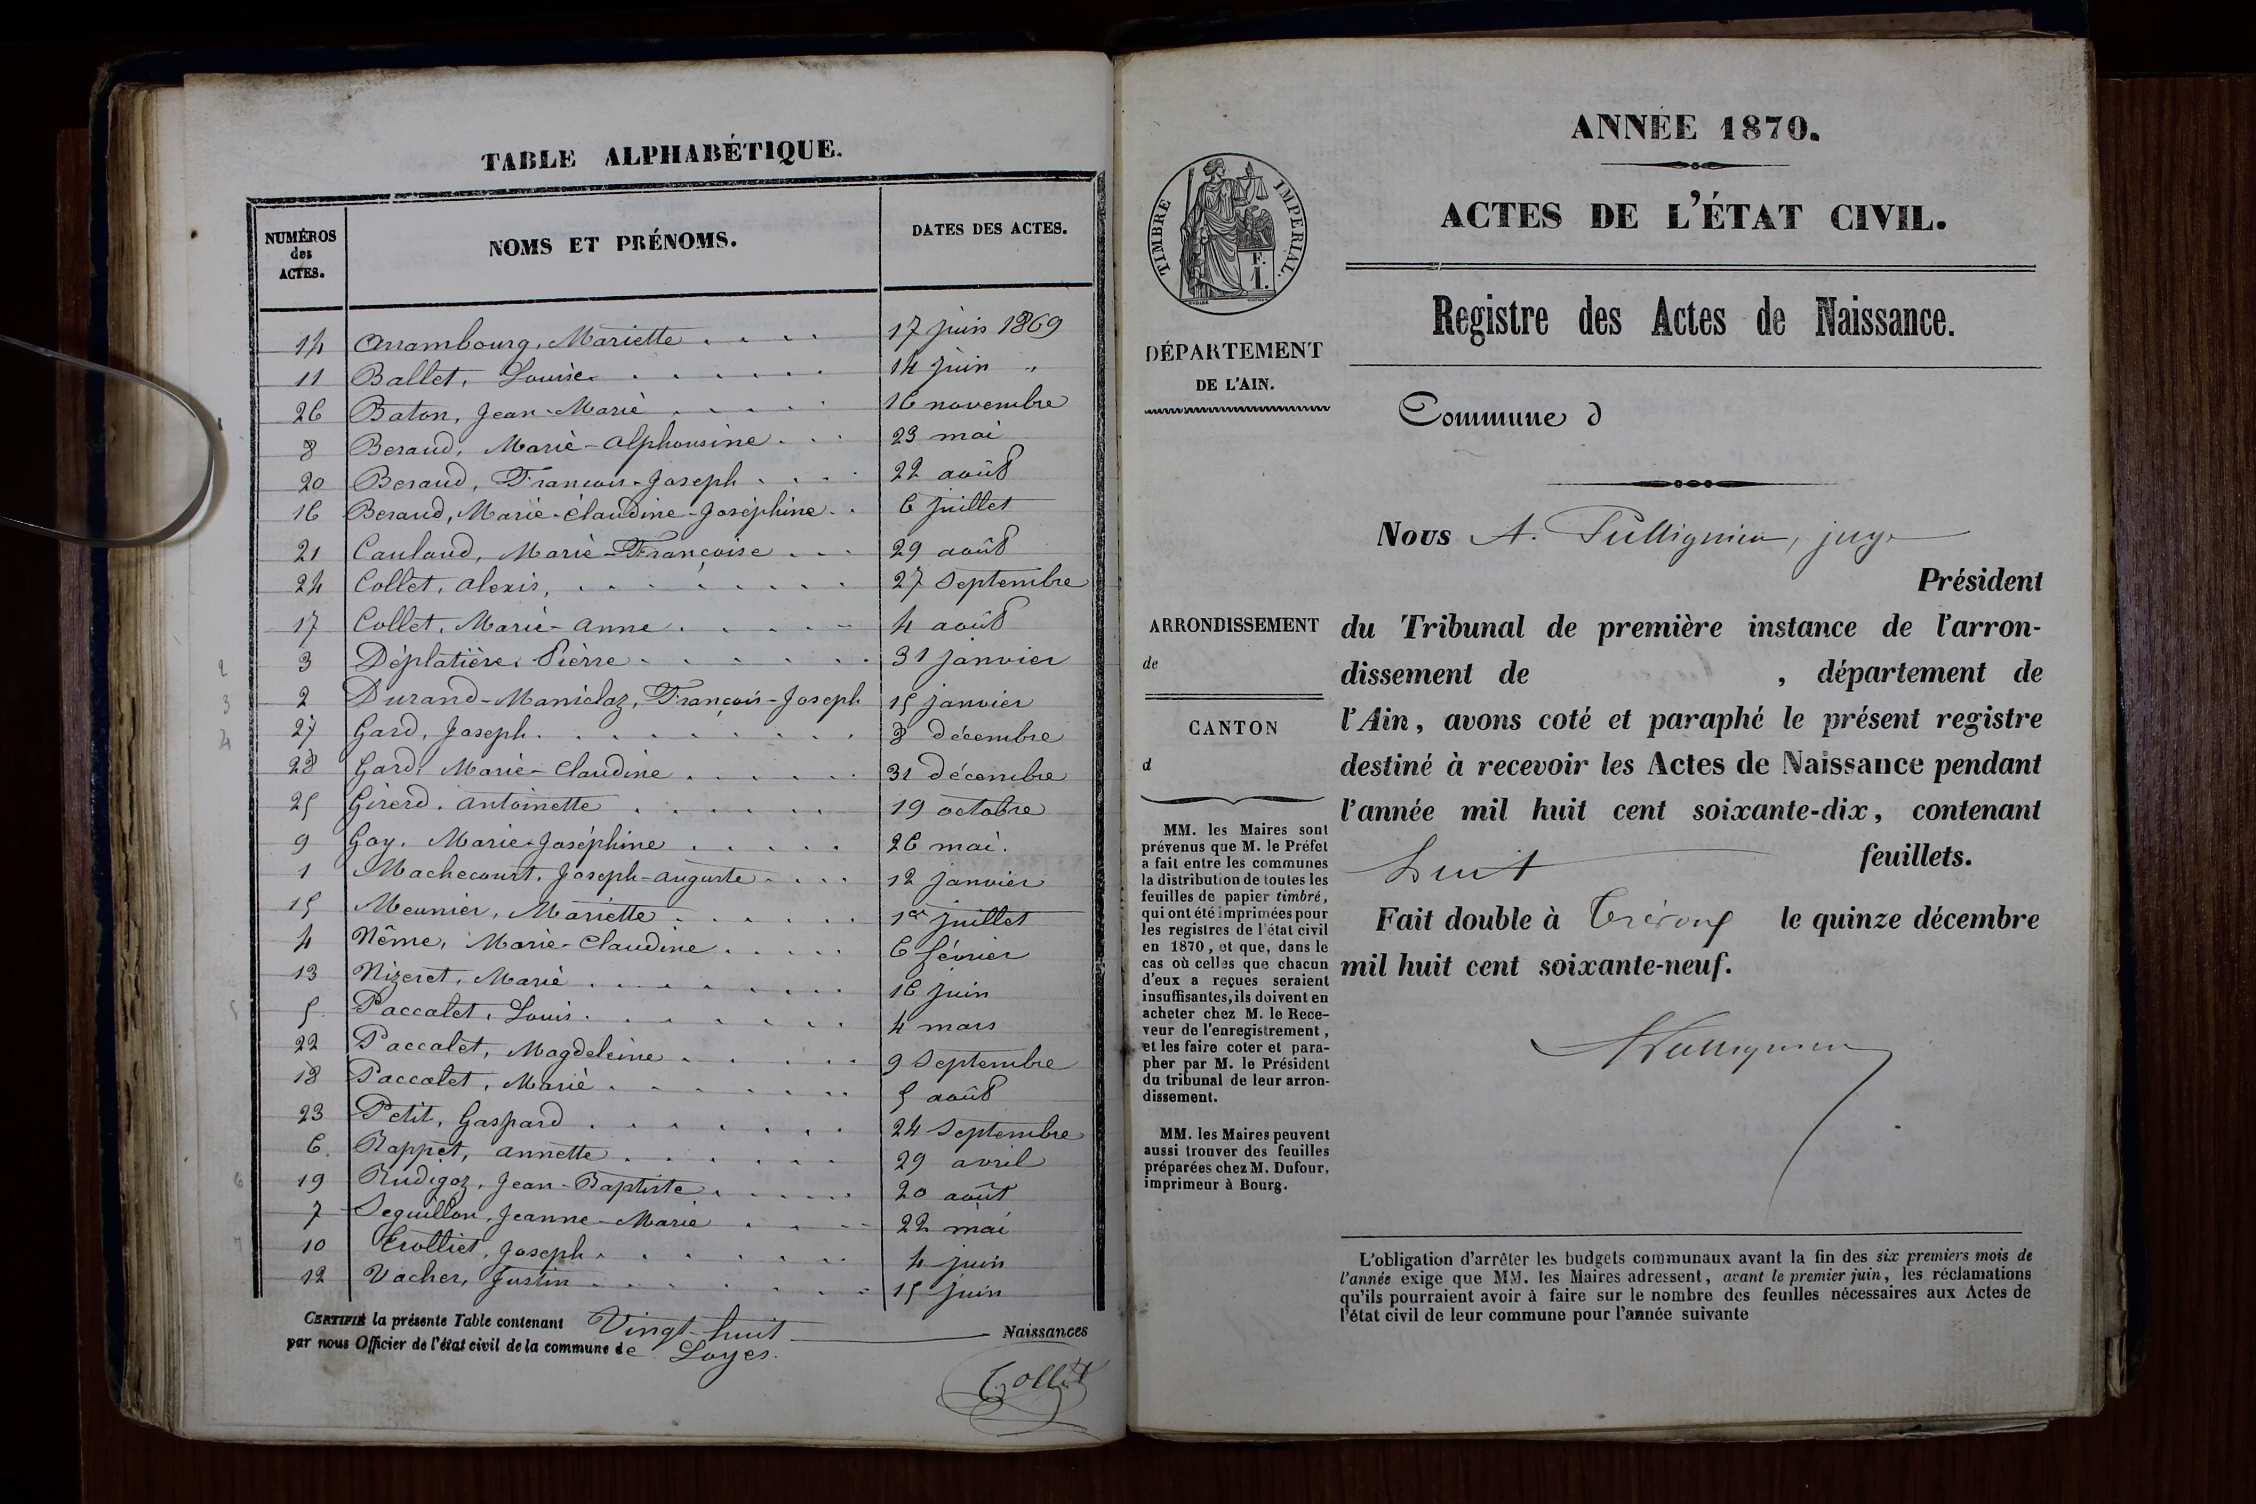 TABLE ALPHABÉTIQUE.
NUMÉROS des ACTES. NOMS ET PRÉNOMS. DATES DES ACTES.
14 Arrambourg, Mariette 17 juin 1869
11 Ballet, Louise 14 juin "
26 Baton, Jean-Marie 16 novembre
8 Beraud, Marie-Alphonsine 23 mai
20 Beraud, Francois-Joseph 22 août
16 Beraud, Marie-Claudine-Joséphine 6 juillet
21 Cauland, Marie-Françoise 29 août
24 Collet, Alexis, 27 Septembre
17 Collet, Marie-Anne 4 août
3 Déplatière, Pierre 31 janvier
2 Durand-Maniclaz, François-Joseph 15 janvier
27 Gard, Joseph 8 décembre
28 Gard, Marie-Claudine 31 décembre
25 Girerd, Antoinette 19 octobre
9 Goy, Marie-Joséphine 26 mai.
1 Machecourt, Joseph-Auguste 12 janvier
15 Meunier, Mariette 1er juillet
4 Nême, Marie-Claudine 6 février
13 Nizeret, Marie 16 juin
5 Paccalet, Louis 4 mars
22 Paccalet, Magdeleine 9 Septembre
18 Paccalet, Marie 5 août
23 Petit, Gaspard 24 Septembre
6 Rappet, Annette 29 avril
19 Rudigoz, Jean-Baptiste 20 août
7 Seguillon, Jeanne-Marie 22 mai
10 Trolliet, Joseph 4 juin
12 Vacher, Justin 15 juin
CERTIFIÉ la présente Table contenant Vingt-huit Naissances
par nous Officier de l'état civil de la commune de Loyes.
Collet
ANNÉE 1870.
ACTES DE L'ÉTAT CIVIL.
Registre des Actes de Naissance.
TIMBRE IMPERIAL.
F.
1.
DÉPARTEMENT
DE L'AIN.
Commune d
Nous A. Pullignieu, juge
Président
ARRONDISSEMENT
de
CANTON
d
du Tribunal de première instance de l'arron-
dissement de , département de
l'Ain, avons coté et paraphé le présent registre
destiné à recevoir les Actes de Naissance pendant
l'année mil huit cent soixante-dix, contenant
huit feuillets.
Fait double à Trévoux le quinze décembre
mil huit cent soixante-neuf.
MM. les Maires sont
prévenus que M. le Préfet
a fait entre les communes
la distribution de toutes les
feuilles de papier timbré,
qui ont été imprimées pour
les registres de l'état civil
en 1870, et que, dans le
cas où celles que chacun
d'eux a reçues seraient
insuffisantes, ils doivent en
acheter chez M. le Rece-
veur de l'enregistrement,
et les faire coter et para-
pher par M. le Président
du tribunal de leur arron-
dissement.
MM. les Maires peuvent
aussi trouver des feuilles
préparées chez M. Dufour,
imprimeur à Bourg.
L'obligation d'arrêter les budgets communaux avant la fin des six premiers mois de
l'année exige que MM. les Maires adressent, avant le premier juin, les réclamations
qu'ils pourraient avoir à faire sur le nombre des feuilles nécessaires aux Actes de
l'état civil de leur commune pour l'année suivante